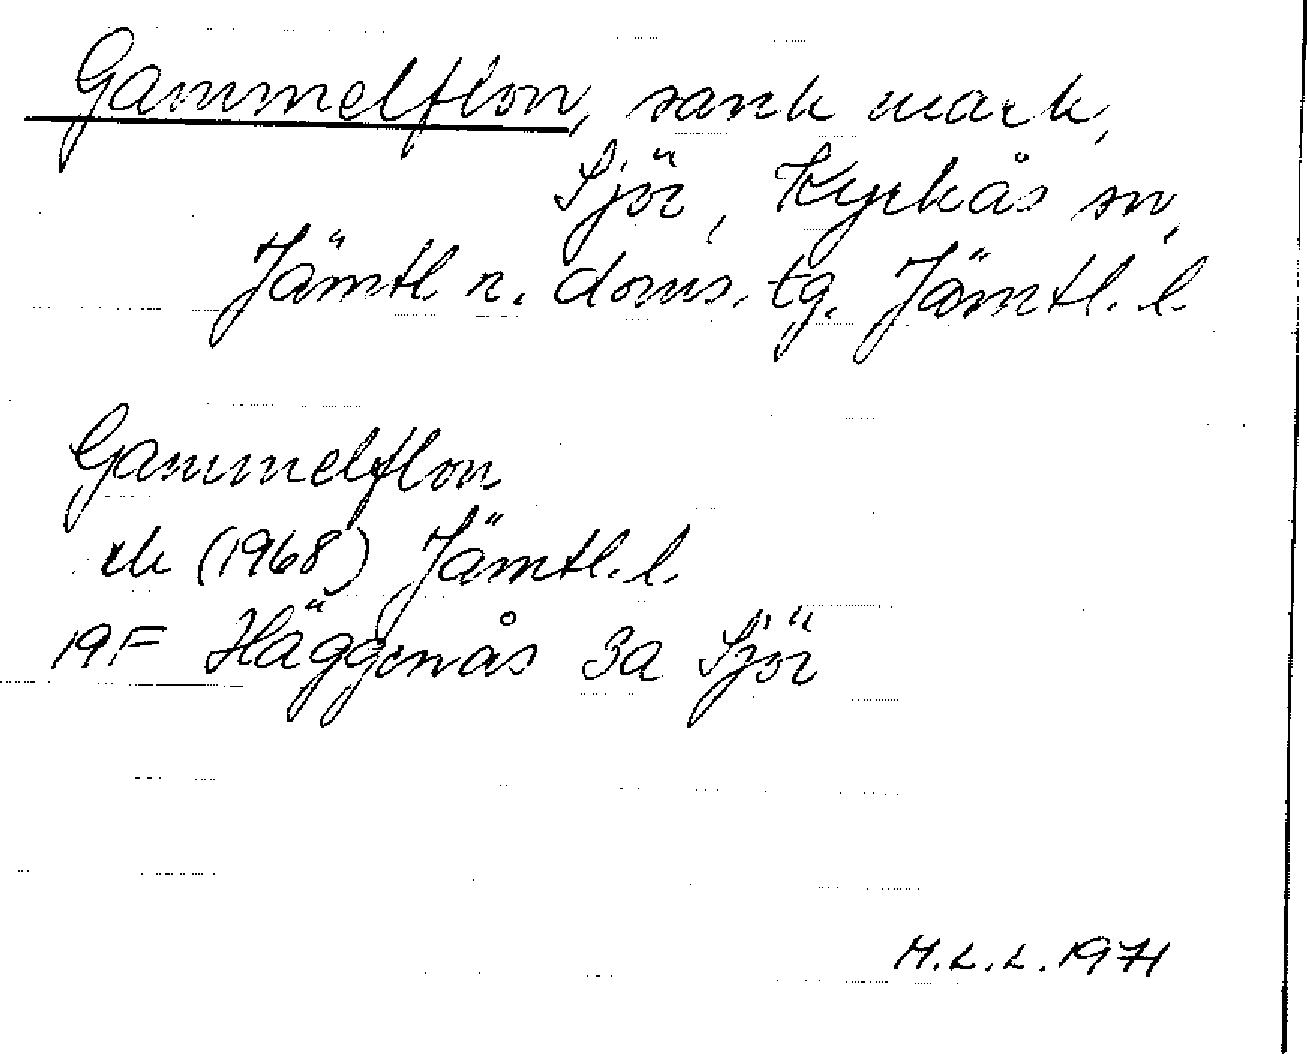 Gammelflon, sank mark,
Sjör, Kyrkås sn,
Jämtl. n. doms. tg. Jämtl. l.
Gammelflon
ek (1968) Jämtl. l.
19F Häggenås 3a Sjör
M.L.L. 1971